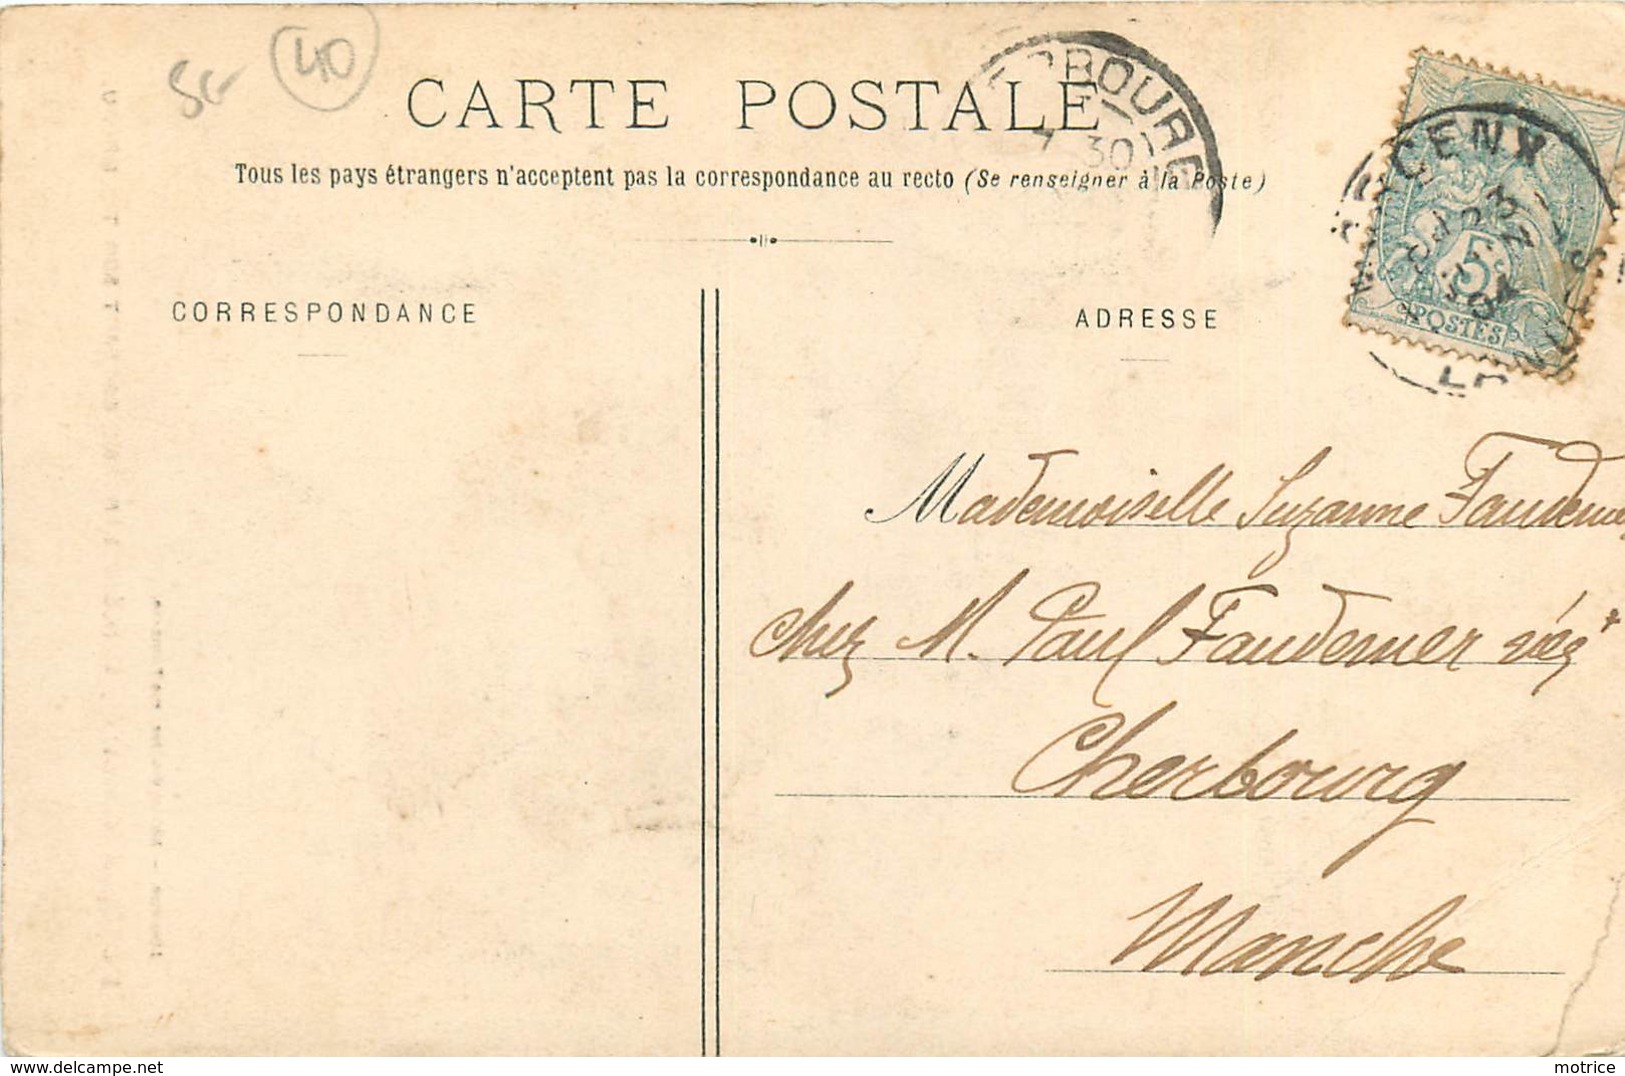 5€ 40
CARTE POSTALE
Tous les pays étrangers n'acceptent pas la correspondance au recto (Se renseigner à la Poste)
CORRESPONDANCE
ADRESSE
RBOURG
30
5
POSTES
Mademoiselle Suzanne
chez M. Paul Faudemer nég^t
Cherbourg
Manche
motrice